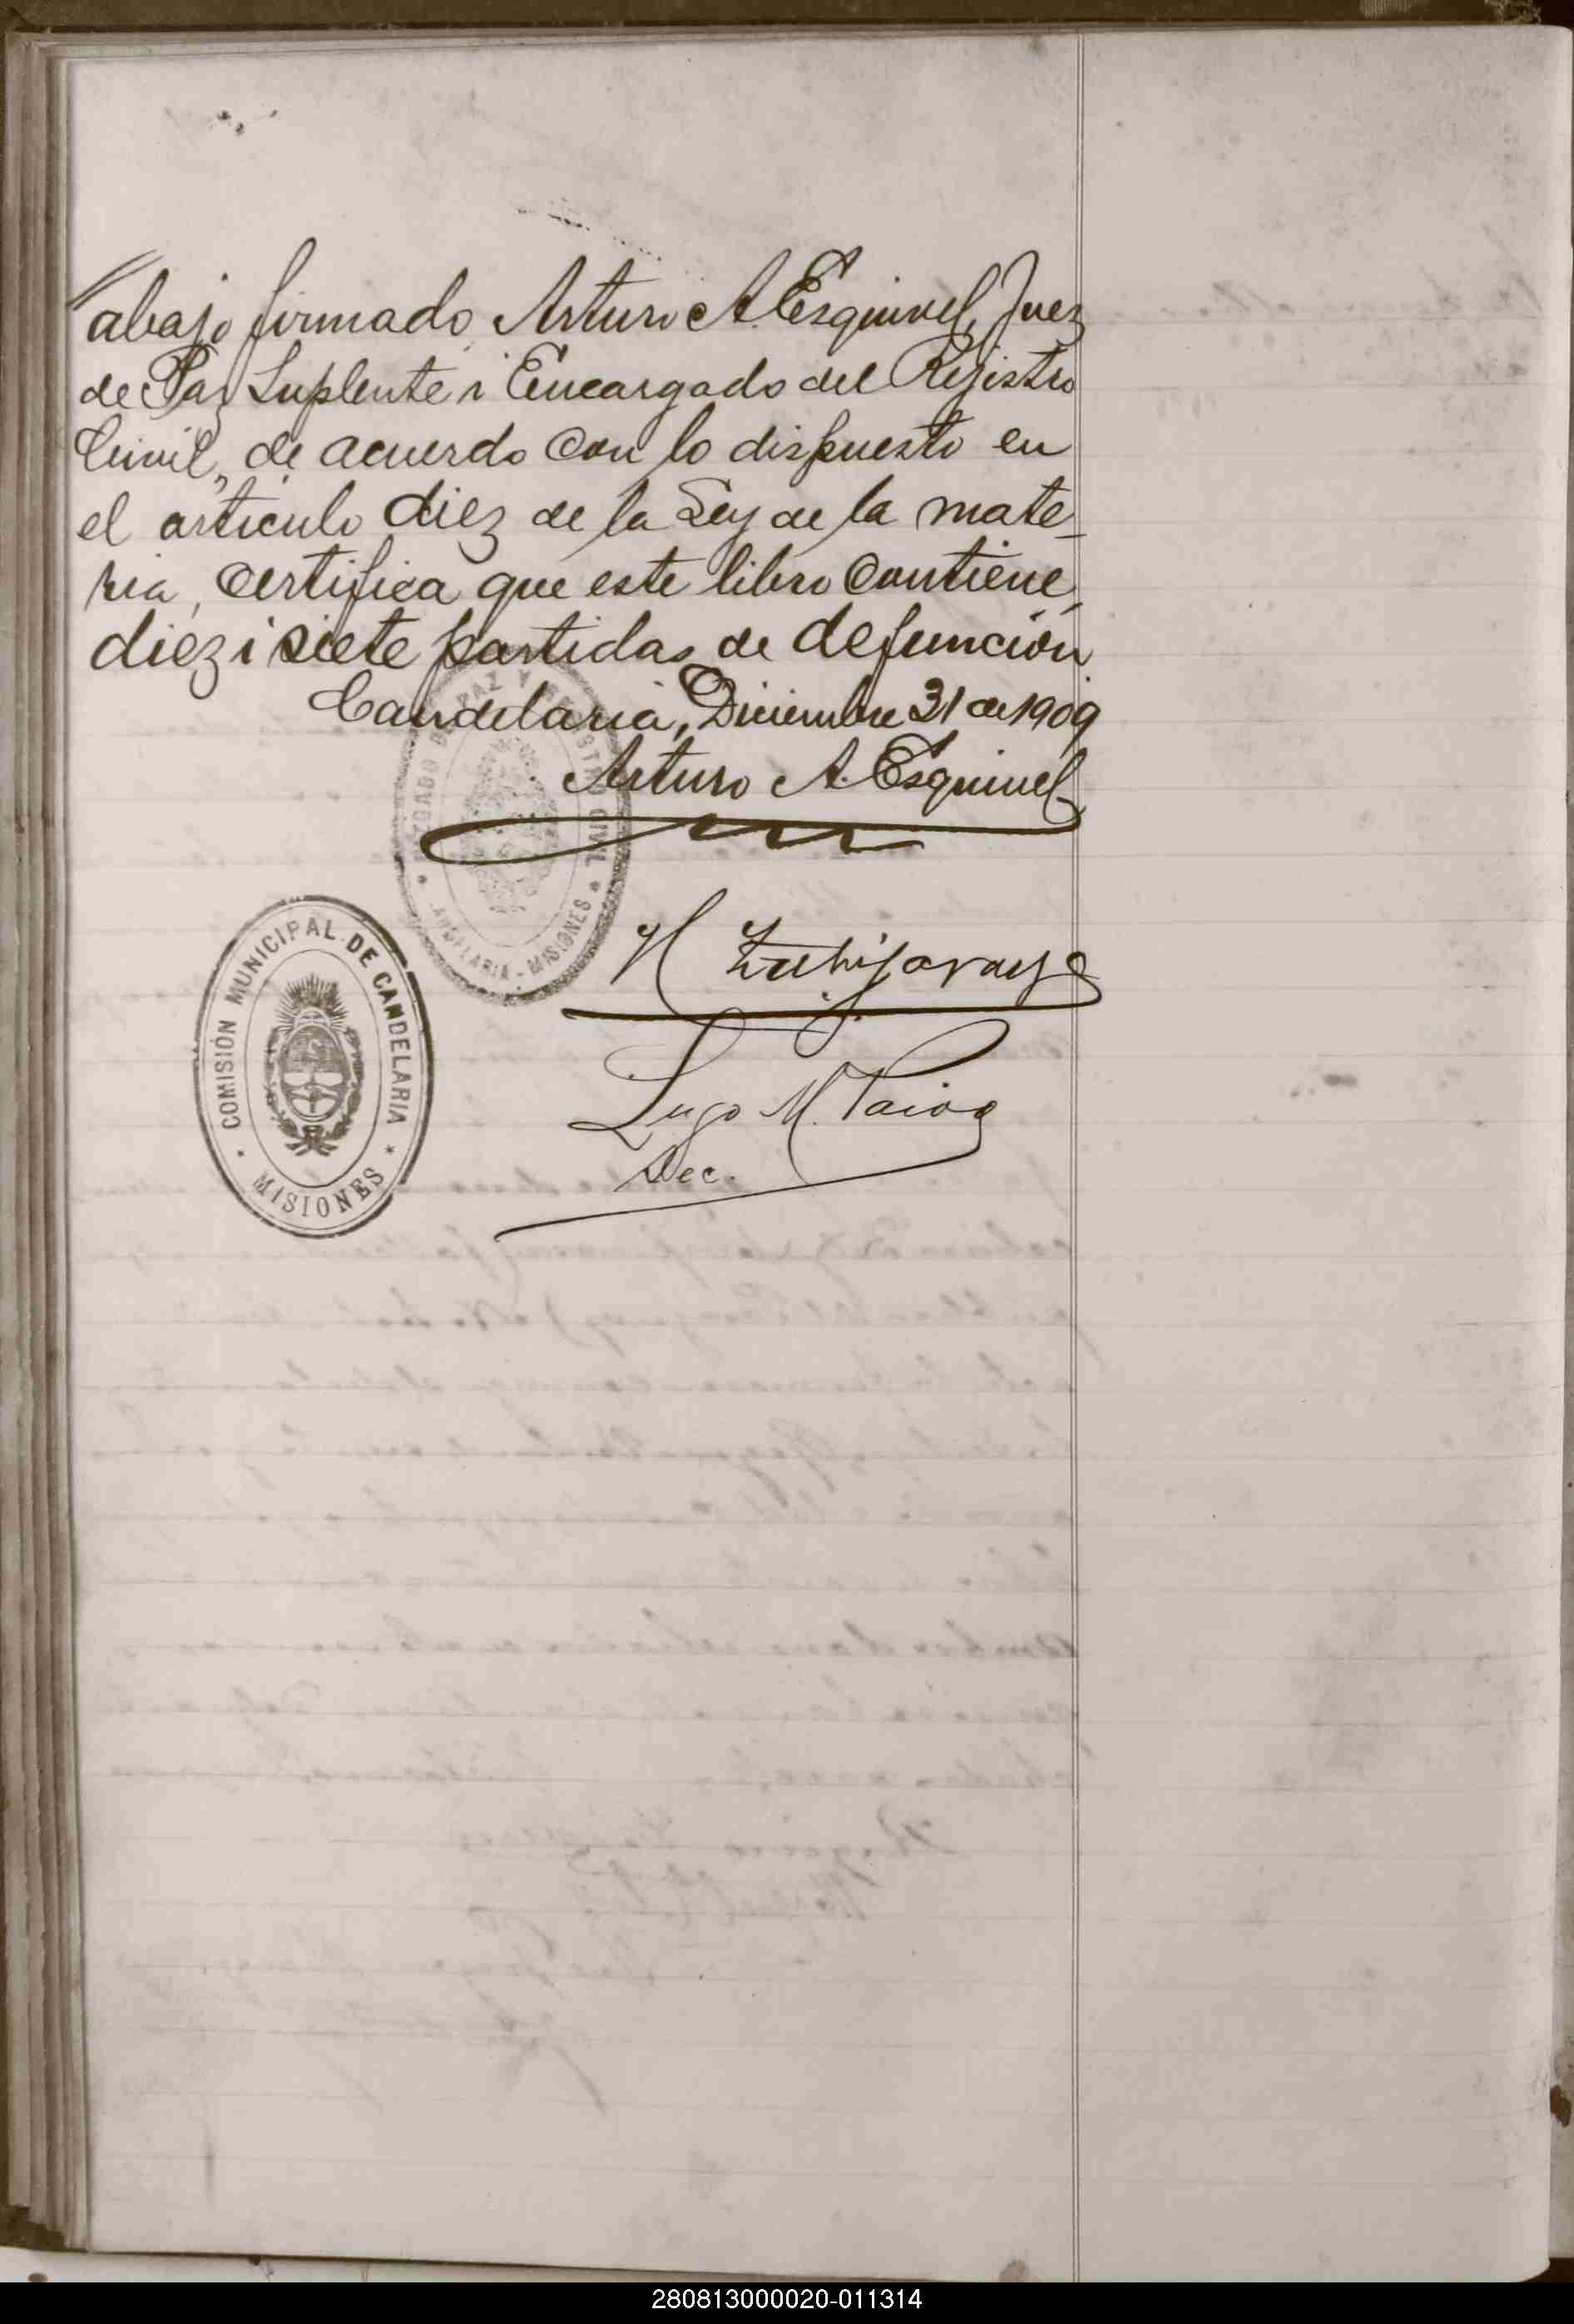 abajo firmado, Arturo A. Esquivel, Juez
de Paz Suplente i Encargado del Rejistro
Civil, de acuerdo con lo dispuesto en
el artículo diez de la Ley de la mate-
ria, certifica que este libro contiene
diez i siete partidas de defunción
Candelaria, Diciembre 31 de 1909
Arturo A. Esquivel
JUZGADO DE PAZ Y REGISTRO CIVIL
CANDELARIA - MISIONES
COMISIÓN MUNICIPAL DE CANDELARIA
MISIONES
H
Lugo M.
Sec.
280813000020-011314